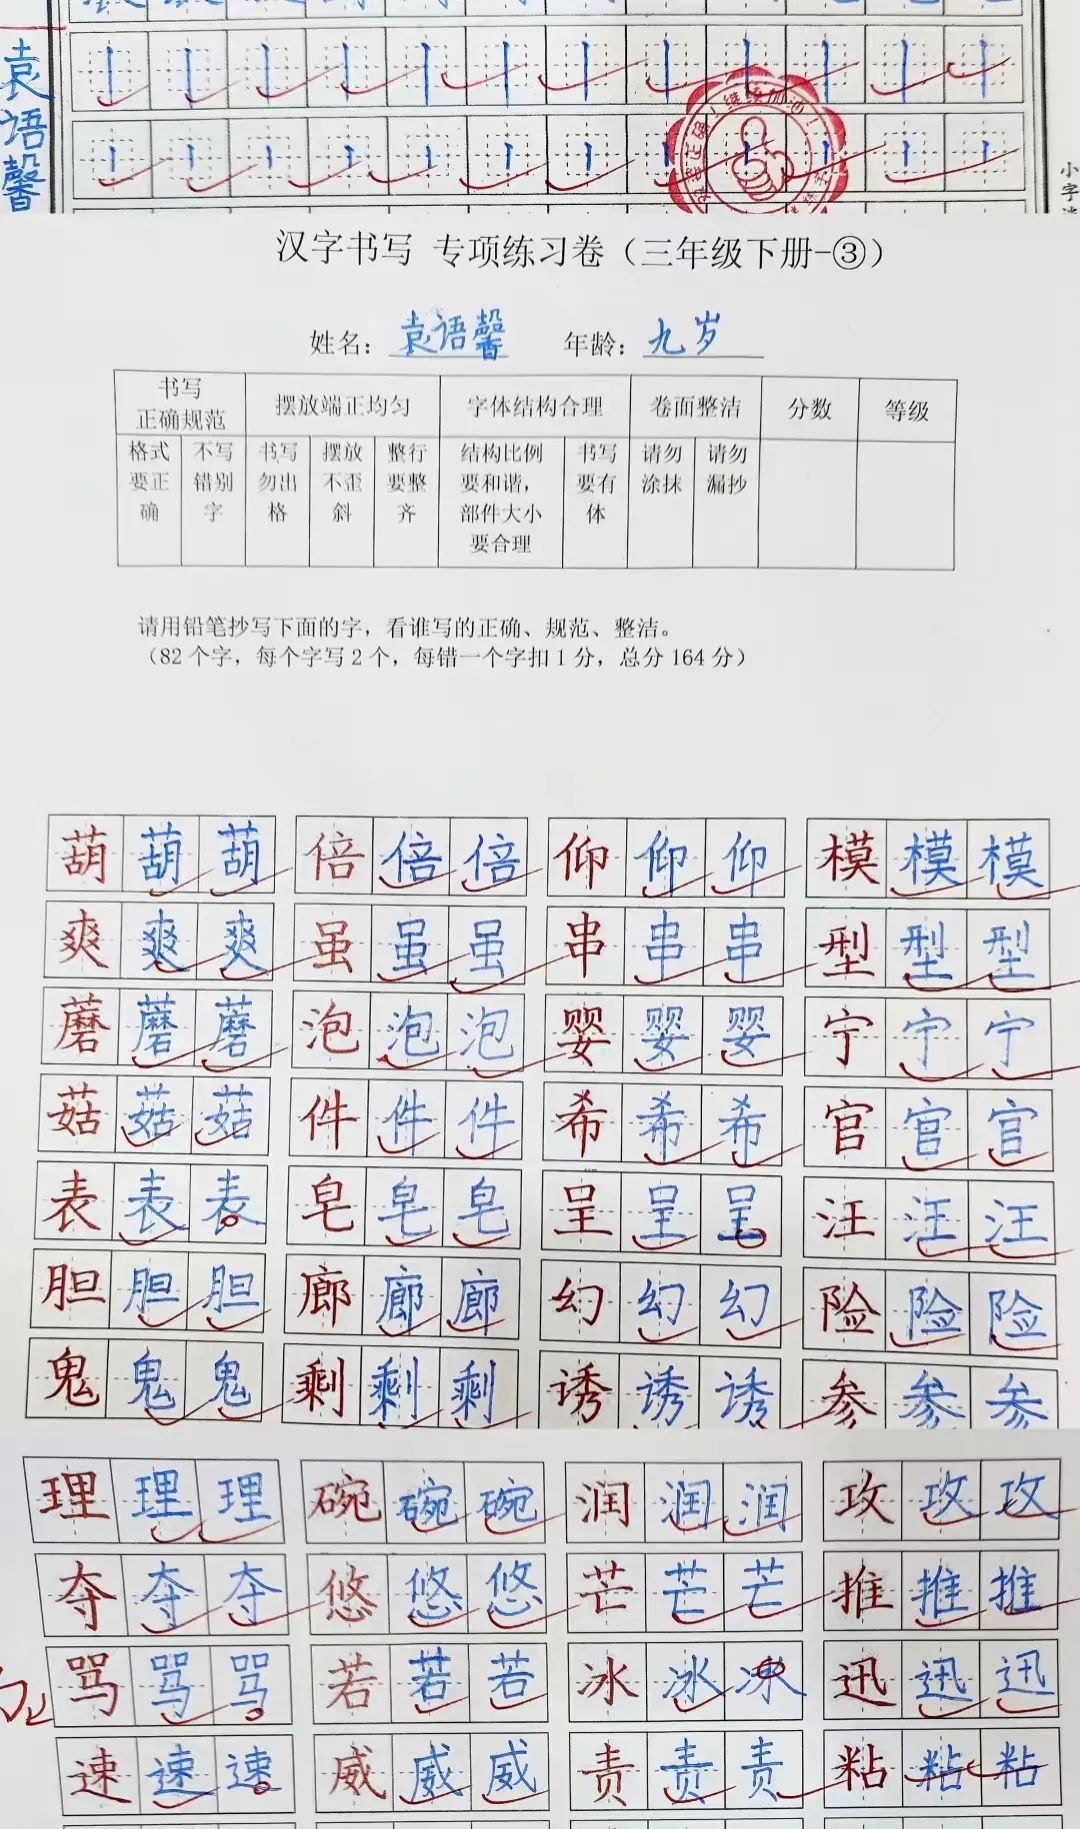 袁语馨
小字
汉字书写 专项练习卷（三年级下册-③）
姓名：袁语馨 年龄：九岁
书写正确规范 摆放端正均匀 字体结构合理 卷面整洁 分数 等级
格式要正确 不写错别字 书写勿出格 摆放不歪斜 整行要整齐 结构比例要和谐，部件大小要合理 书写要有体 请勿涂抹 请勿漏抄
请用铅笔抄写下面的字，看谁写的正确、规范、整洁。
（82个字，每个字写2个，每错一个字扣1分，总分164分）
葫葫葫 倍倍倍 仰仰仰 模模模
爽爽爽 虽虽虽 串串串 型型型
蘑蘑蘑 泡泡泡 婴婴婴 宁宁宁
菇菇菇 件件件 希希希 官官官
表表表 皂皂皂 呈呈呈 汪汪汪
胆胆胆 廊廊廊 幻幻幻 险险险
鬼鬼鬼 剩剩剩 诱诱诱 参参参
理理理 碗碗碗 润润润 攻攻攻
夺夺夺 悠悠悠 芒芒芒 推推推
骂骂骂 若若若 冰冰冰 迅迅迅
速速速 威威威 责责责 粘粘粘